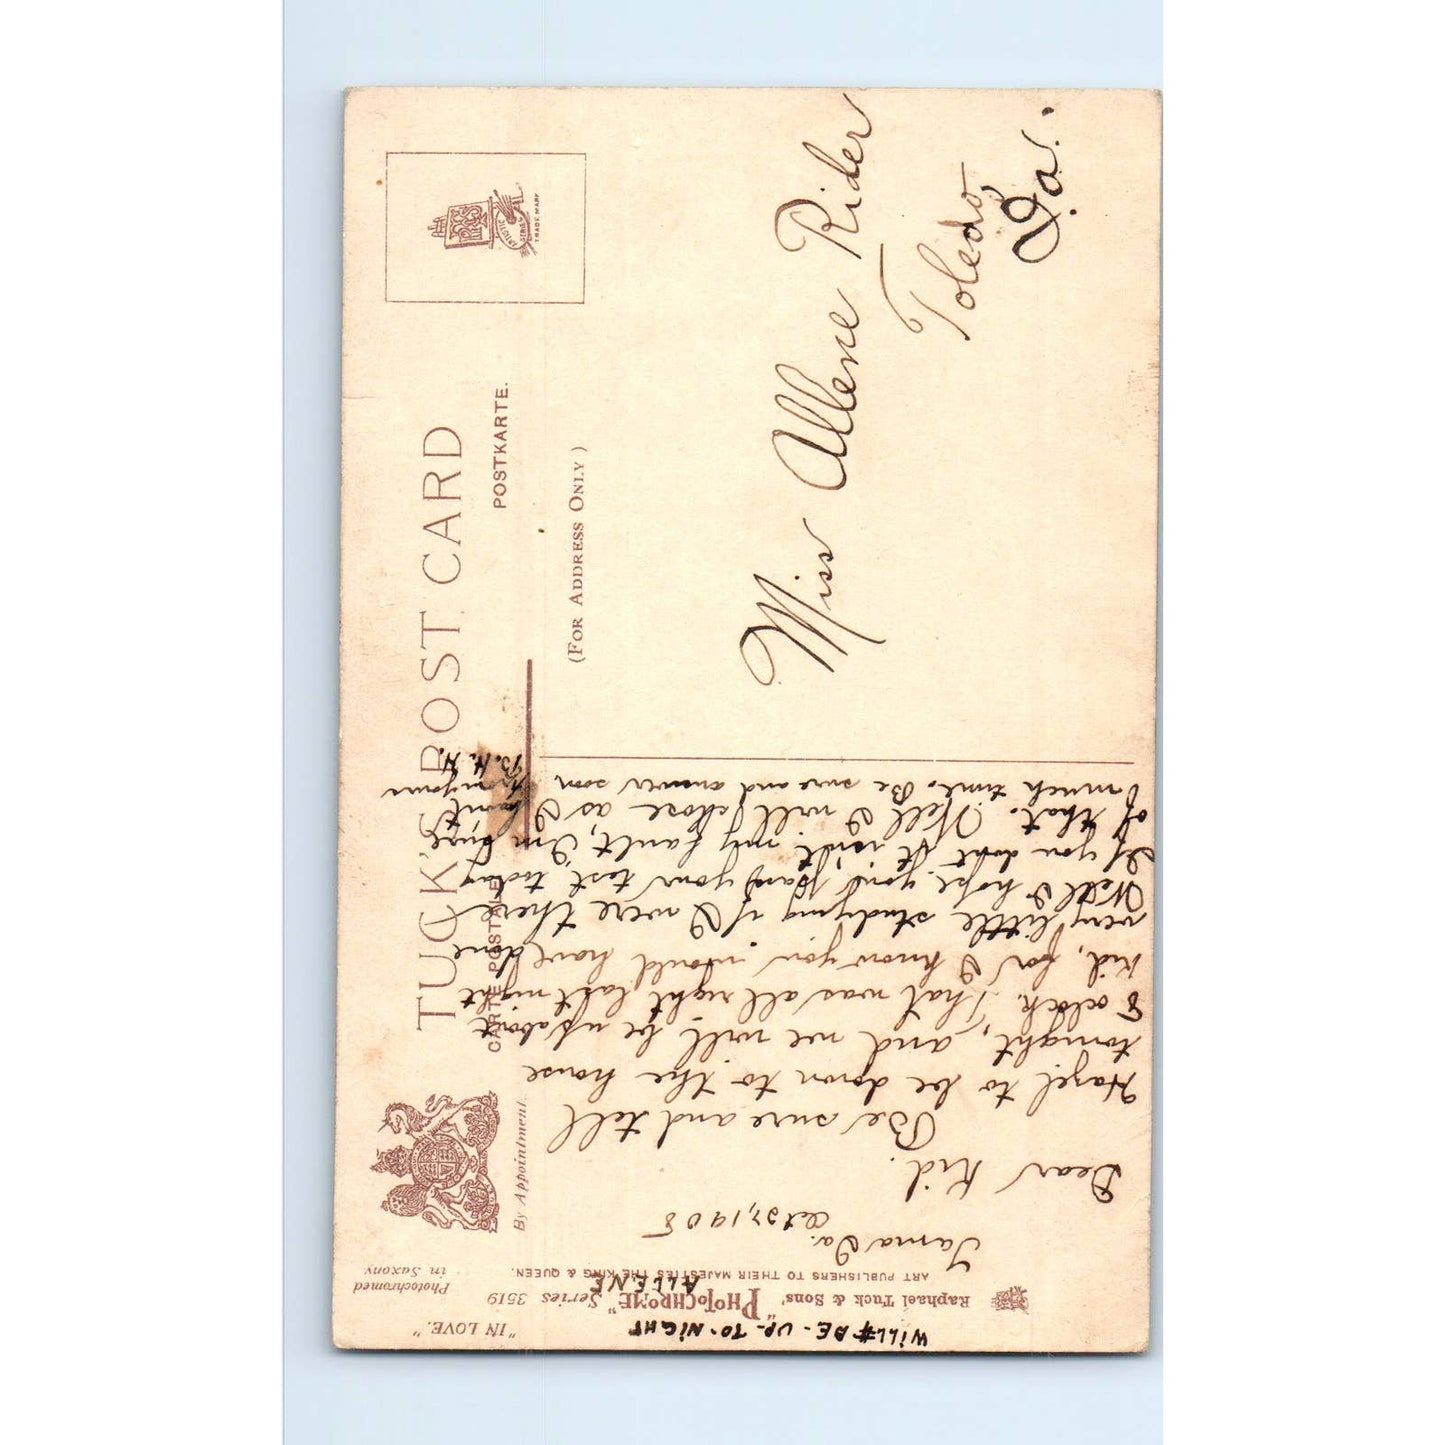 TUCK'S POST CARD
CARTE POSTALE
POSTKARTE.
By Appointment.
(FOR ADDRESS ONLY)
ARTISTIC
SERIES
TRADE MARK
Miss Allene Rider
Toledo,
Ia.
"IN LOVE."
WILL BE-UP-TO-NIGHT
ALLENE
Raphael Tuck & Sons' "PHOTOCHROME" Series 3519
Photochromed
in Saxony
ART PUBLISHERS TO THEIR MAJESTIES THE KING & QUEEN.
Tama Ia.
Oct 27, 1908
Dear Kid.
Be sure and tell
Hazel to be down to the house
tonight, and we will be up about
8 oclock. That was all right last night
Kid, for I know you would have done
very little studying if I were there
Well I hope you pass your test today
If you dont it isnt my fault, I'm sure
of that. Well I will close as I haven't
much time. Be sure and answer soon
From yours
B. H. H.